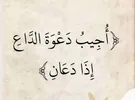 ﴿أُجِيبُ دَعْوَةَ الدَّاعِ
إِذَا دَعَانِ﴾